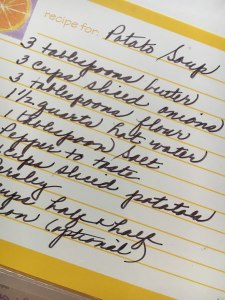 recipe for: Potato Soup
3 tablespoons butter
3 cups sliced onions
3 tablespoons flour
1½ quarts hot water
1 (tablespoon) salt
Pepper to taste
sliced potatoes
half & half
(optional)